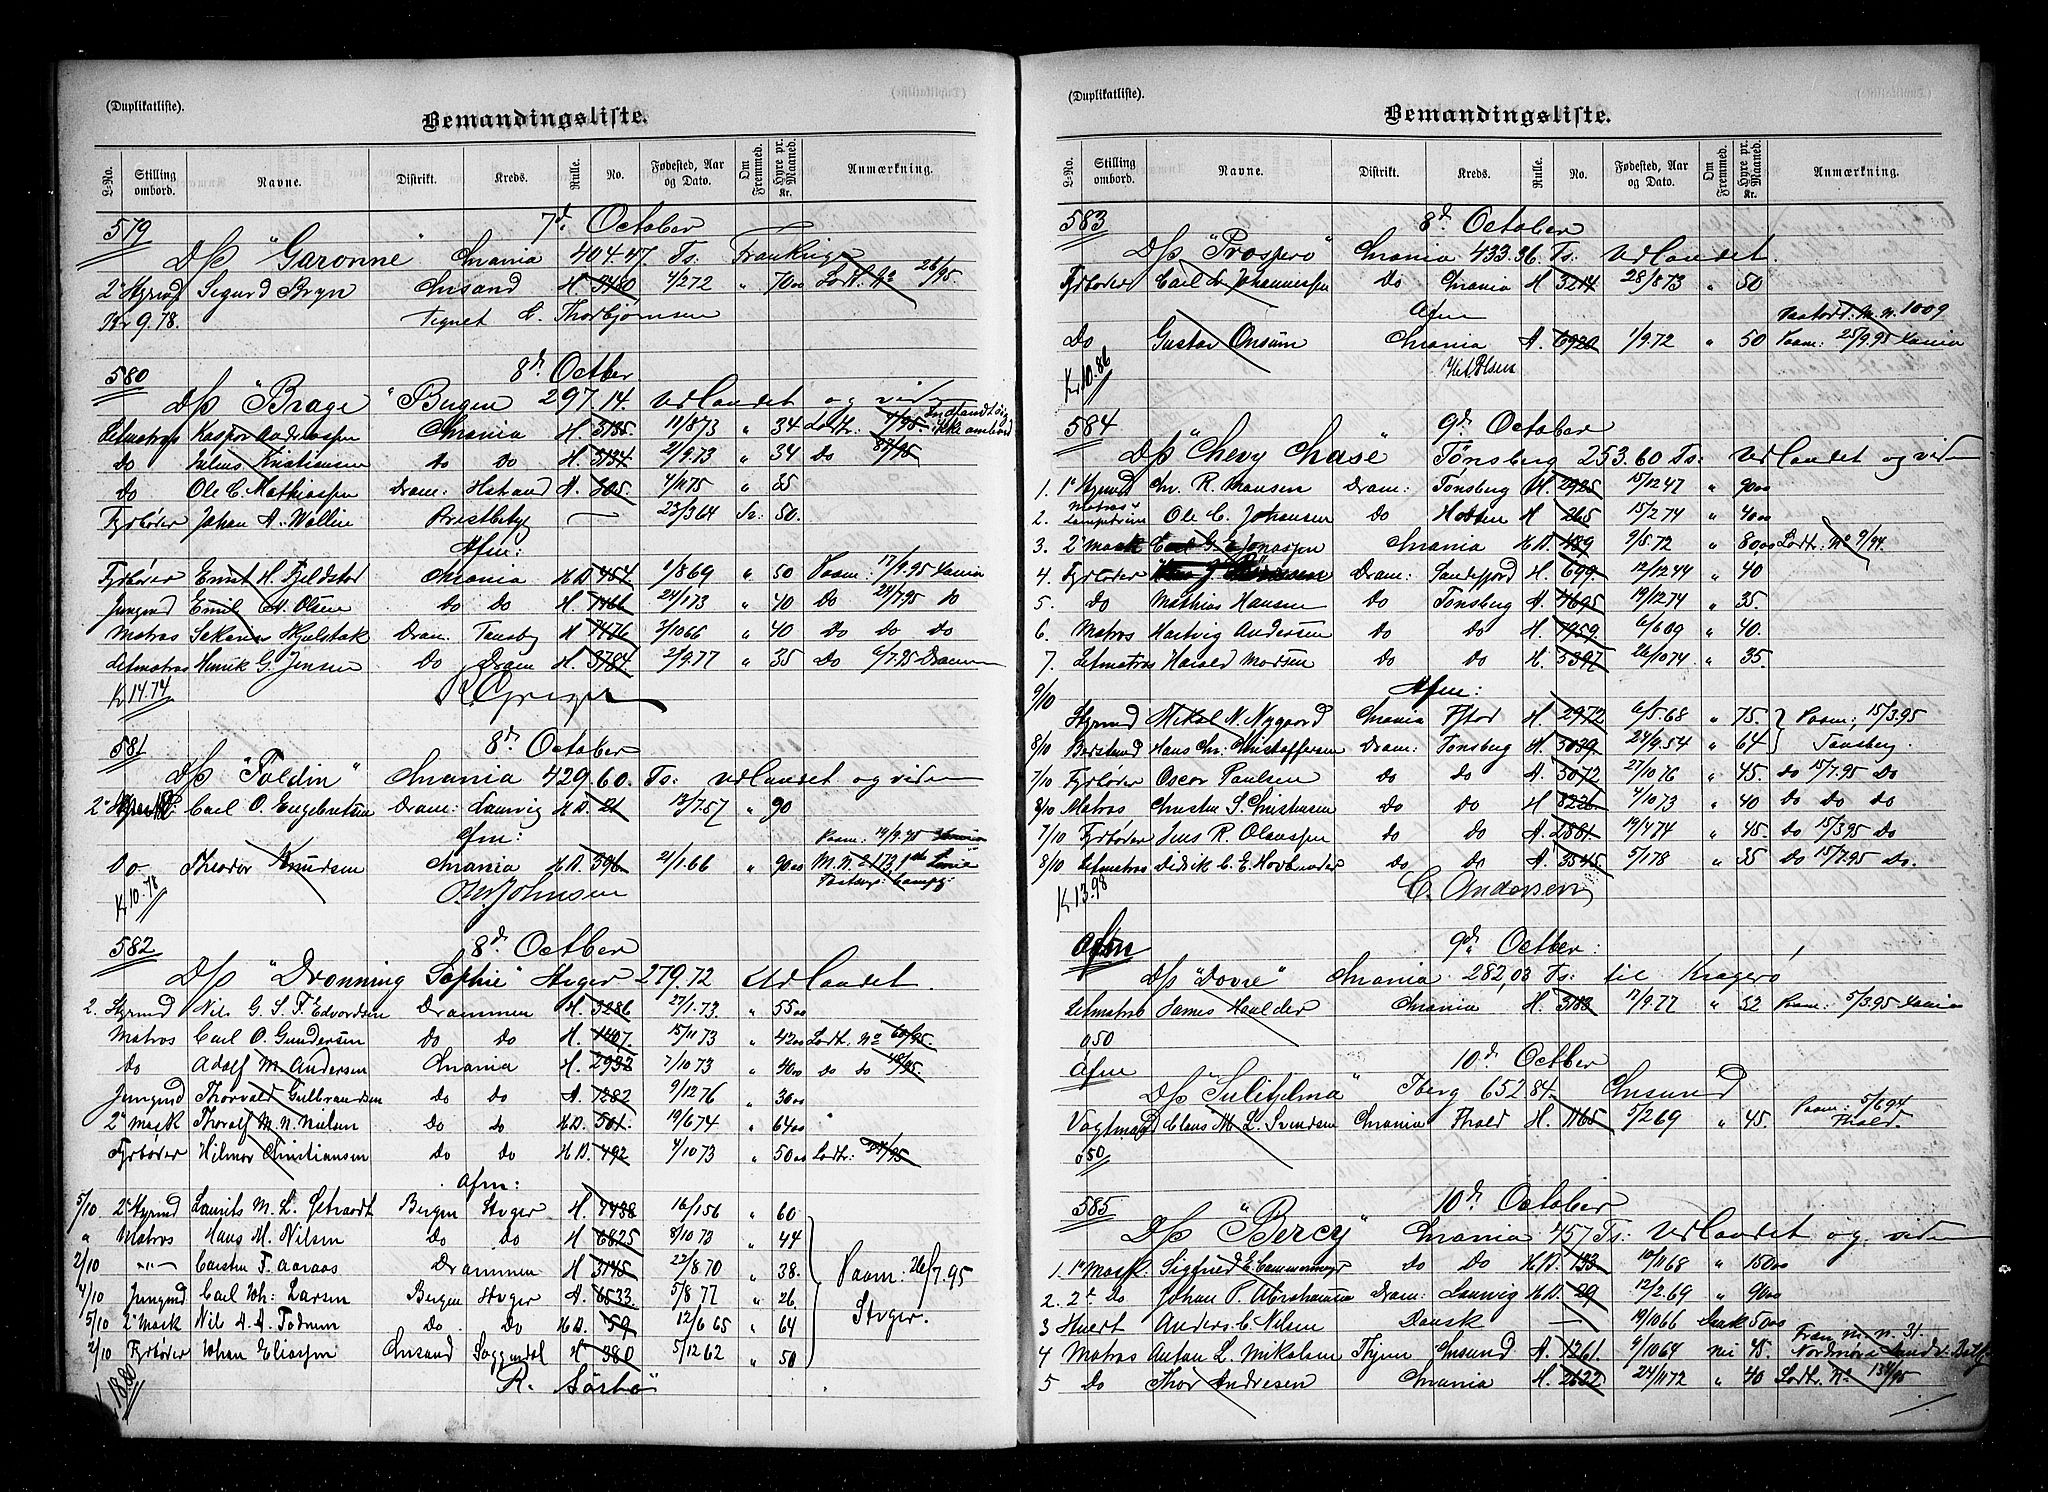 (Duplikatliste).
Bemandingsliste.
L-No. Stilling ombord. Navne. Distrikt. Kreds. Rulle. No. Fødested, Aar og Dato. Om Fremmed. Hyre pr. Maaned. Kr. Anmærkning.
579 7d October
D/S "Garonne" Chrania 404.47 Ts.
2 Styrmd Sigurd Bryn Chrsand H 3480 4/2 72 " 70 00 Lodtr. No 26/95.
Kr 9.78. Tegnet C. Thorbjørnsen
580 8d Octber
D/S "Brage" Bergen 297.14. Udlandet og vider
Letmatros Kasper Andreassen Chrania H. 3185. 11/8 73 " 34 Lodtr: Ikke ombord
Do Julius Kristiansen Do Do H. 5134. 2/9.73 " 34 Do
Do Ole C. Mathiassen Dram: A. 305. 4/1 75 " 35
Fyrbøder Johan A. Wallin — 23/3 64 Sv: 50.
Afm:
Fyrbøder Ernst H. Fjeldstad Chrania H.D. 454. 1/8 69 " 50 Paam: 17/9.95 Xania
Jungmd Emil A. Olsen Do Do H. 7466 24/1 73 " 40 Do 24/7.95 Do
Matros Sakarias Skjelstak Dram: Tønsbg A 7476 3/10 66 " 40 Do Do Do
Letmatros Henrik G. Jensen Do Dram H. 3784 2/9.77 " 35 Do 6/7.95 Drammen
Kr 14.74
581 8d October
D/S "Foldin" Chrania 429.60. Ts: Udlandet og vider
2 Carl O. Engebretsen Dram: Laurvig H.D. 21 12/7.57 " 90
Afm:
Do. Theodor Knudsen Chrania H.D. 306 21/1.66 " 90 00 M.N. 2173
Kr 10.78 Johnsen
582 8d Octber
D/S "Dronning Sophie" Stvger 279.72 Udlandet.
2. Styrmd Nils G. S. F. Edvardsen Drammen H. 3286 27/1.73. " 55 00
Matros Carl O. Gundersen Do Do H. 1407. 15/11 73 " 42 00 Lodtr. No 60/95.
Do Adolf M. Andersen Chrania H. 2932 7/10 73 " 40 00 Do Do 48/95
Jungmd Thorvald Gulbrandsen Do Do A. 7282 9/12 76 " 30 00
2 Mask Thoralf M. N. Nielsen Do Do H.D. 501. 19/6 74 " 64 00
Fyrbøder Hilmar Christiansen Do Do H.D. 492 4/10 73 " 50 00 Lodtr:
Afm:
5/10 2 Styrmd Laurits M. L. Bergen Stvger H. 7438 16/1 56 " 60
" Matros Hans M. Nilsen Do Do H 6825 8/10 73 " 44
2/10 "—"— Carsten F. Aaraas Drammen H 3145 22/8 70 " 38. Paam: 26/7.95
4/10 Jungmd Carl Joh: Larsen Bergen Stvger A. 6533. 5/8 77 " 26 Stvger.
5/10 2 Mask Nils A. A. Fodnem Do. Do H.D. 59 12/6 65 " 64
2/10 Fyrbøder Johan Eliassen Chrsand Soggendal H 380 5/12 62 " 50
18.80 R. Sørbø
(Duplikatliste).
Bemandingsliste.
L-No. Stilling ombord. Navne. Distrikt. Kreds. Rulle. No. Fødested, Aar og Dato. Om Fremmed. Hyre pr. Maaned. Kr. Anmærkning.
583 8d October
D/S "Prospero" Chrania 433.36 Ts: Udlandet.
Fyrbøder Carl L. Johannessen Do Chrania H 3214 28/8 73 " 50
Afm M.N. 1009
Do Gustav Onsum Chrania A. 6920 1/9.72 " 50 Paam: 25/9.95 Xania
Kr 10.86
584 9d October
D/S "Chevy Chase" Tønsberg 253.60 Ts: Udlandet og vider
1. 1 Styrmd Chr. R. Hansen Dram: Tønsberg H 2925 15/12 47 " 90 00
2. Matros & Lampetrim Ole C. Johansen Do Holmen H 265 15/2 74 " 40 00
3. 2 Mask Carl G. E Jonassen Chrania H.D. 489 9/5.72 " 80 00 Lodtr. No 9/94.
4. Fyrbøder Dram: Sandefjord H. 699. 12/12 44 " 40
5. Do Mathias Hansen Do Tønsberg A. 4695 19/12 74 " 35.
6. Matros Hartvig Andersen Do Do H. 7959. 6/6 09 " 40.
7. Letmatros Harald Madsen Do Do H. 5397 26/10 74 " 35.
9/10 Afm:
Styrmd Mikal N. Nygaard Chrania Fstad H 2972 6/5.68 " 75. Paam: 15/3.95
8/10 Bestmd Hans Chr. Christoffersen Dram: Tønsberg H. 5039. 24/9.54 " 64 Tønsberg.
7/10 Fyrbøder Oscar Paulsen Do Do A. 3072 27/10 76 " 45. Do 15/7.95 Do
8/10 Matros Christen S. Christensen Do Do H 8226. 4/10 73 " 40 Do Do Do
7/10 Fyrbøder Jens R. Olaussen Do Do A. 2881 19/4 74 " 45. Do 15/3.95 Do
8/10 Letmatros Didrik C. E. Hovlandsø Do Do A. 3545 5/1 78 " 35 Do 15/7.95 Do.
Kr 13.98 C. Andersen
Afm 9d Octber:
D/S "Dovre" Chrania 282,08 Ts: til Kragerø
Letmatros James Haulder Chrania H. 3183 17/9.77 " 32 Paam: 5/3.95 Xania
0 50
Afm 10d Octber
D/S "Sulitjelma" Tberg 652 84. Chrsund
Vagtmand Claus M. L. Svendsen Chrania Thold H. 1165 5/2 69 " 45. Paam: 5/6 94 Thold.
0 50
585 10d October
D/S "Bercy" Chrania 457 Ts: Udlandet og vider
1. 1 Mask. Sigfried E. Cammermeyer Do Do H.D. 133 10/11 68 " 150 00
2. 2 Do Johan P. Abrahamsen Dram: Laurvig H.D. 29 12/2.69 " 90 00
3 Stuert Anders C. Nilsen Dansk — 19/10 66 Dansk 50 00
4 Matros Anton L. Mikalsen Thjem Chrsund A. 1261. 9/10 64 nei 45. Fram. m. n. 31.
5 Do Thor Andresen Chrania H. 2632 24/11 72 " 40 Lodtr. No 134/95